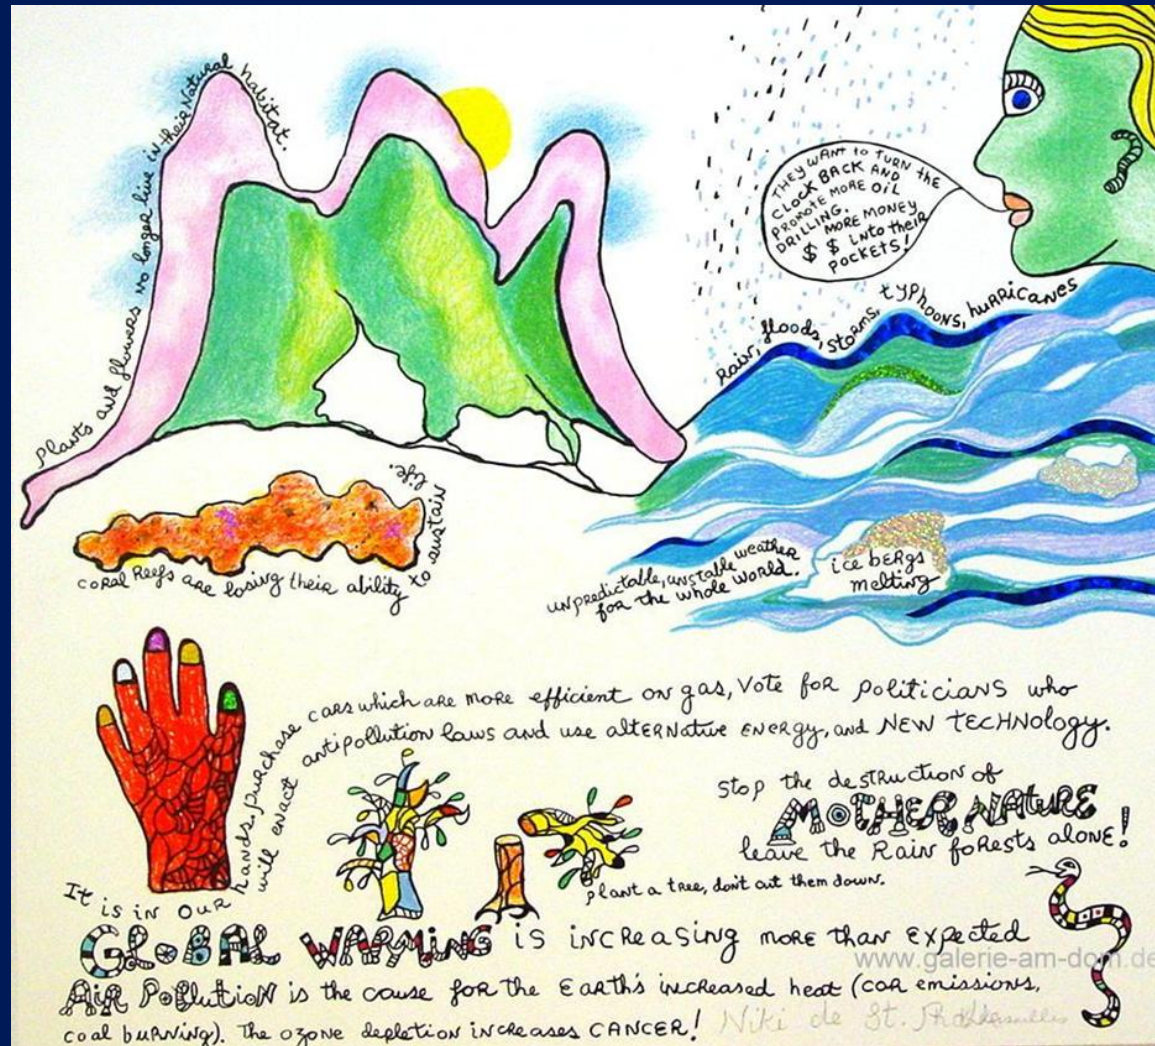 Plants and flowers no longer live in their Natural habitat.
THEY WANT to TURN THE
CLOCK BACK AND
PROMOTE MORE OIL
DRILLING.
MORE MONEY
$ $ into their
POCKETS!
Rain, floods, storms, tYPHOONS, huRRICANES
coral Reefs are losing their ability to sustain life.
unpredictable, unstable weather
for the whole world.
ice beRgs
melting
It is in our hands. purchase cars which are more efficient on gas, Vote for politicians who
will enact antipollution laws and use alteRNative ENERGY, and NEW TECHNOLOGY.
Stop the destRuction of
MOTHER NATURE
leave the Rain foRests alone!
plant a tree, don't cut them down.
GLOBAL WARMING is iNCReasiNG moRe than Expected
www.galerie-am-dom.de
AiR PoLLutioN is the cause for the Earth's increased heat (car emissions,
coal burning). The ozone depletion increases CANCER!
Niki de St. Phalle